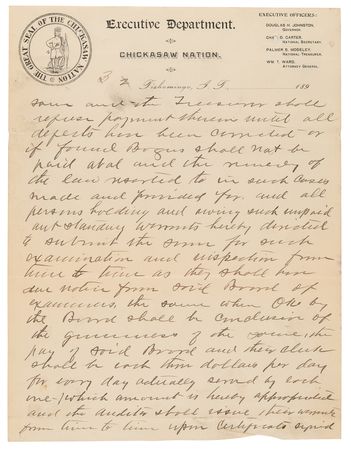 THE GREAT SEAL OF THE CHICKASAW NATION
Executive Department.
CHICKASAW NATION.
EXECUTIVE OFFICERS:
DOUGLAS H. JOHNSTON,
GOVERNOR.
CHAS. D. CARTER,
NATIONAL SECRETARY.
PALMER S. MOSELEY,
NATIONAL TREASURER.
WM. T. WARD,
ATTORNEY GENERAL.
Tishomingo, I. T. 189
same and the Treasurer shall
refuse payment therein until all
defects have been corrected or
if found Bogus shall not be
paid atal and the remedy of
the law resorted to in such cases
made and provided for. and all
persons holding and owing such unpaid
out standing warrants hereby directed
to submit the same for such
examination and inspection from
time to time as they shall have
due notice from said Board of
examiners the same when Oked by
the Board shall be conclusion of
the genuiness of the same, the
pay of said Board and their clerk
shall be each three dollars per day
for every day actually served by each
one) which amount is hereby appropriated
and the auditor shall issue their warrants
from time to time upon certificate signed